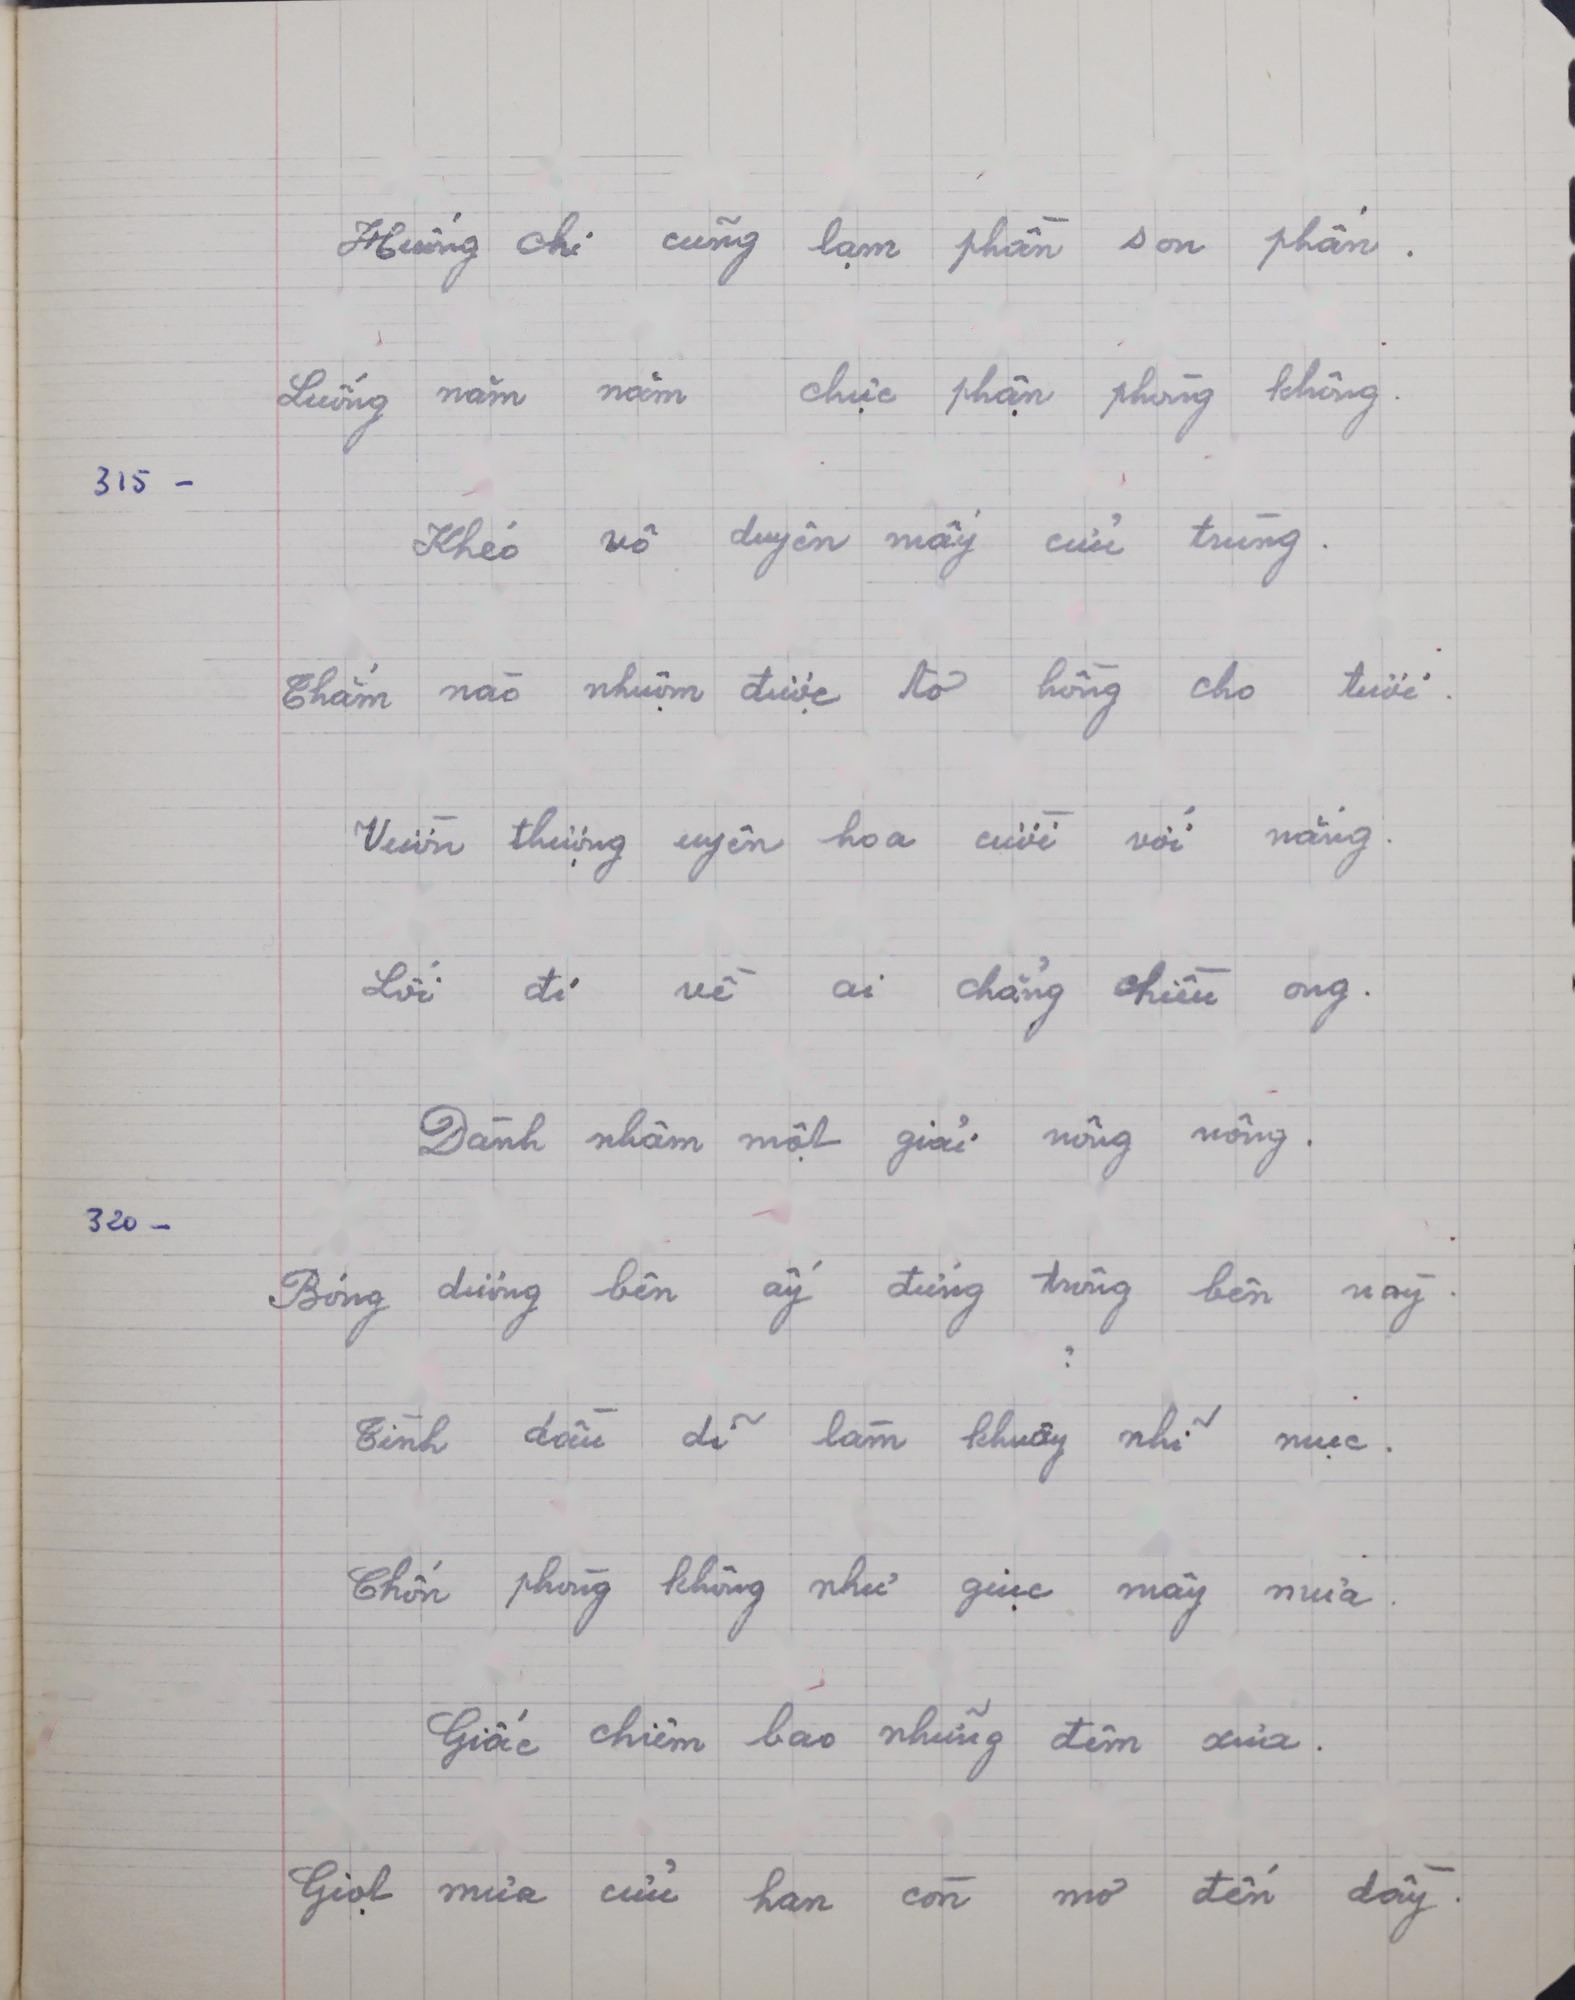 Huống chi cũng lạm phần son phấn.
Luống năm năm chực phận phòng không.
315 -
Khéo vô duyên mấy cửu trùng.
Thắm nào nhuộm được tơ hồng cho tươi.
Vườn thượng uyên hoa cười với nắng.
Lối đi về ai chẳng chiều ong.
Dành nhâm một giải nông nông.
320 -
Bóng dương bên ấy đứng trông bên này.
?
Tình dầu dĩ làm khuây nhĩ mục.
Chốn phòng không như giục mây mưa.
Giấc chiêm bao những đêm xưa.
Giọt mưa cửu han còn mơ đến dầy.